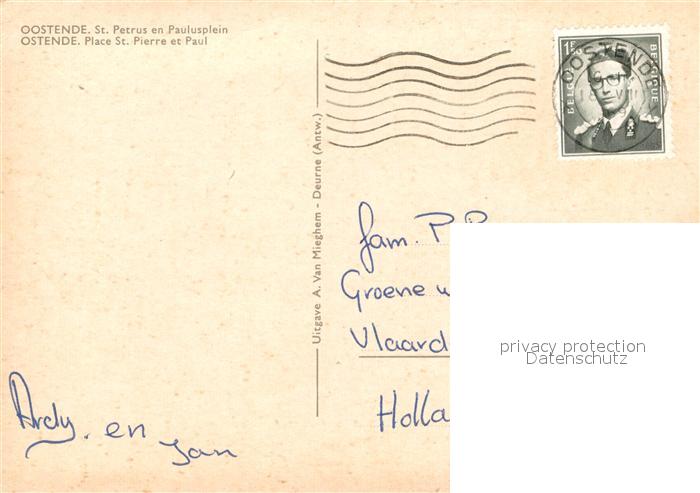 OOSTENDE. St. Petrus en Paulusplein
OSTENDE. Place St. Pierre et Paul
1F50
BELGIE BELGIQUE
OOSTENDE
Uitgave A. Van Mieghem - Deurne (Antw.)
fam. P.
Groene
Vlaard
Holla
privacy protection
Datenschutz
Ardy. en
Jan